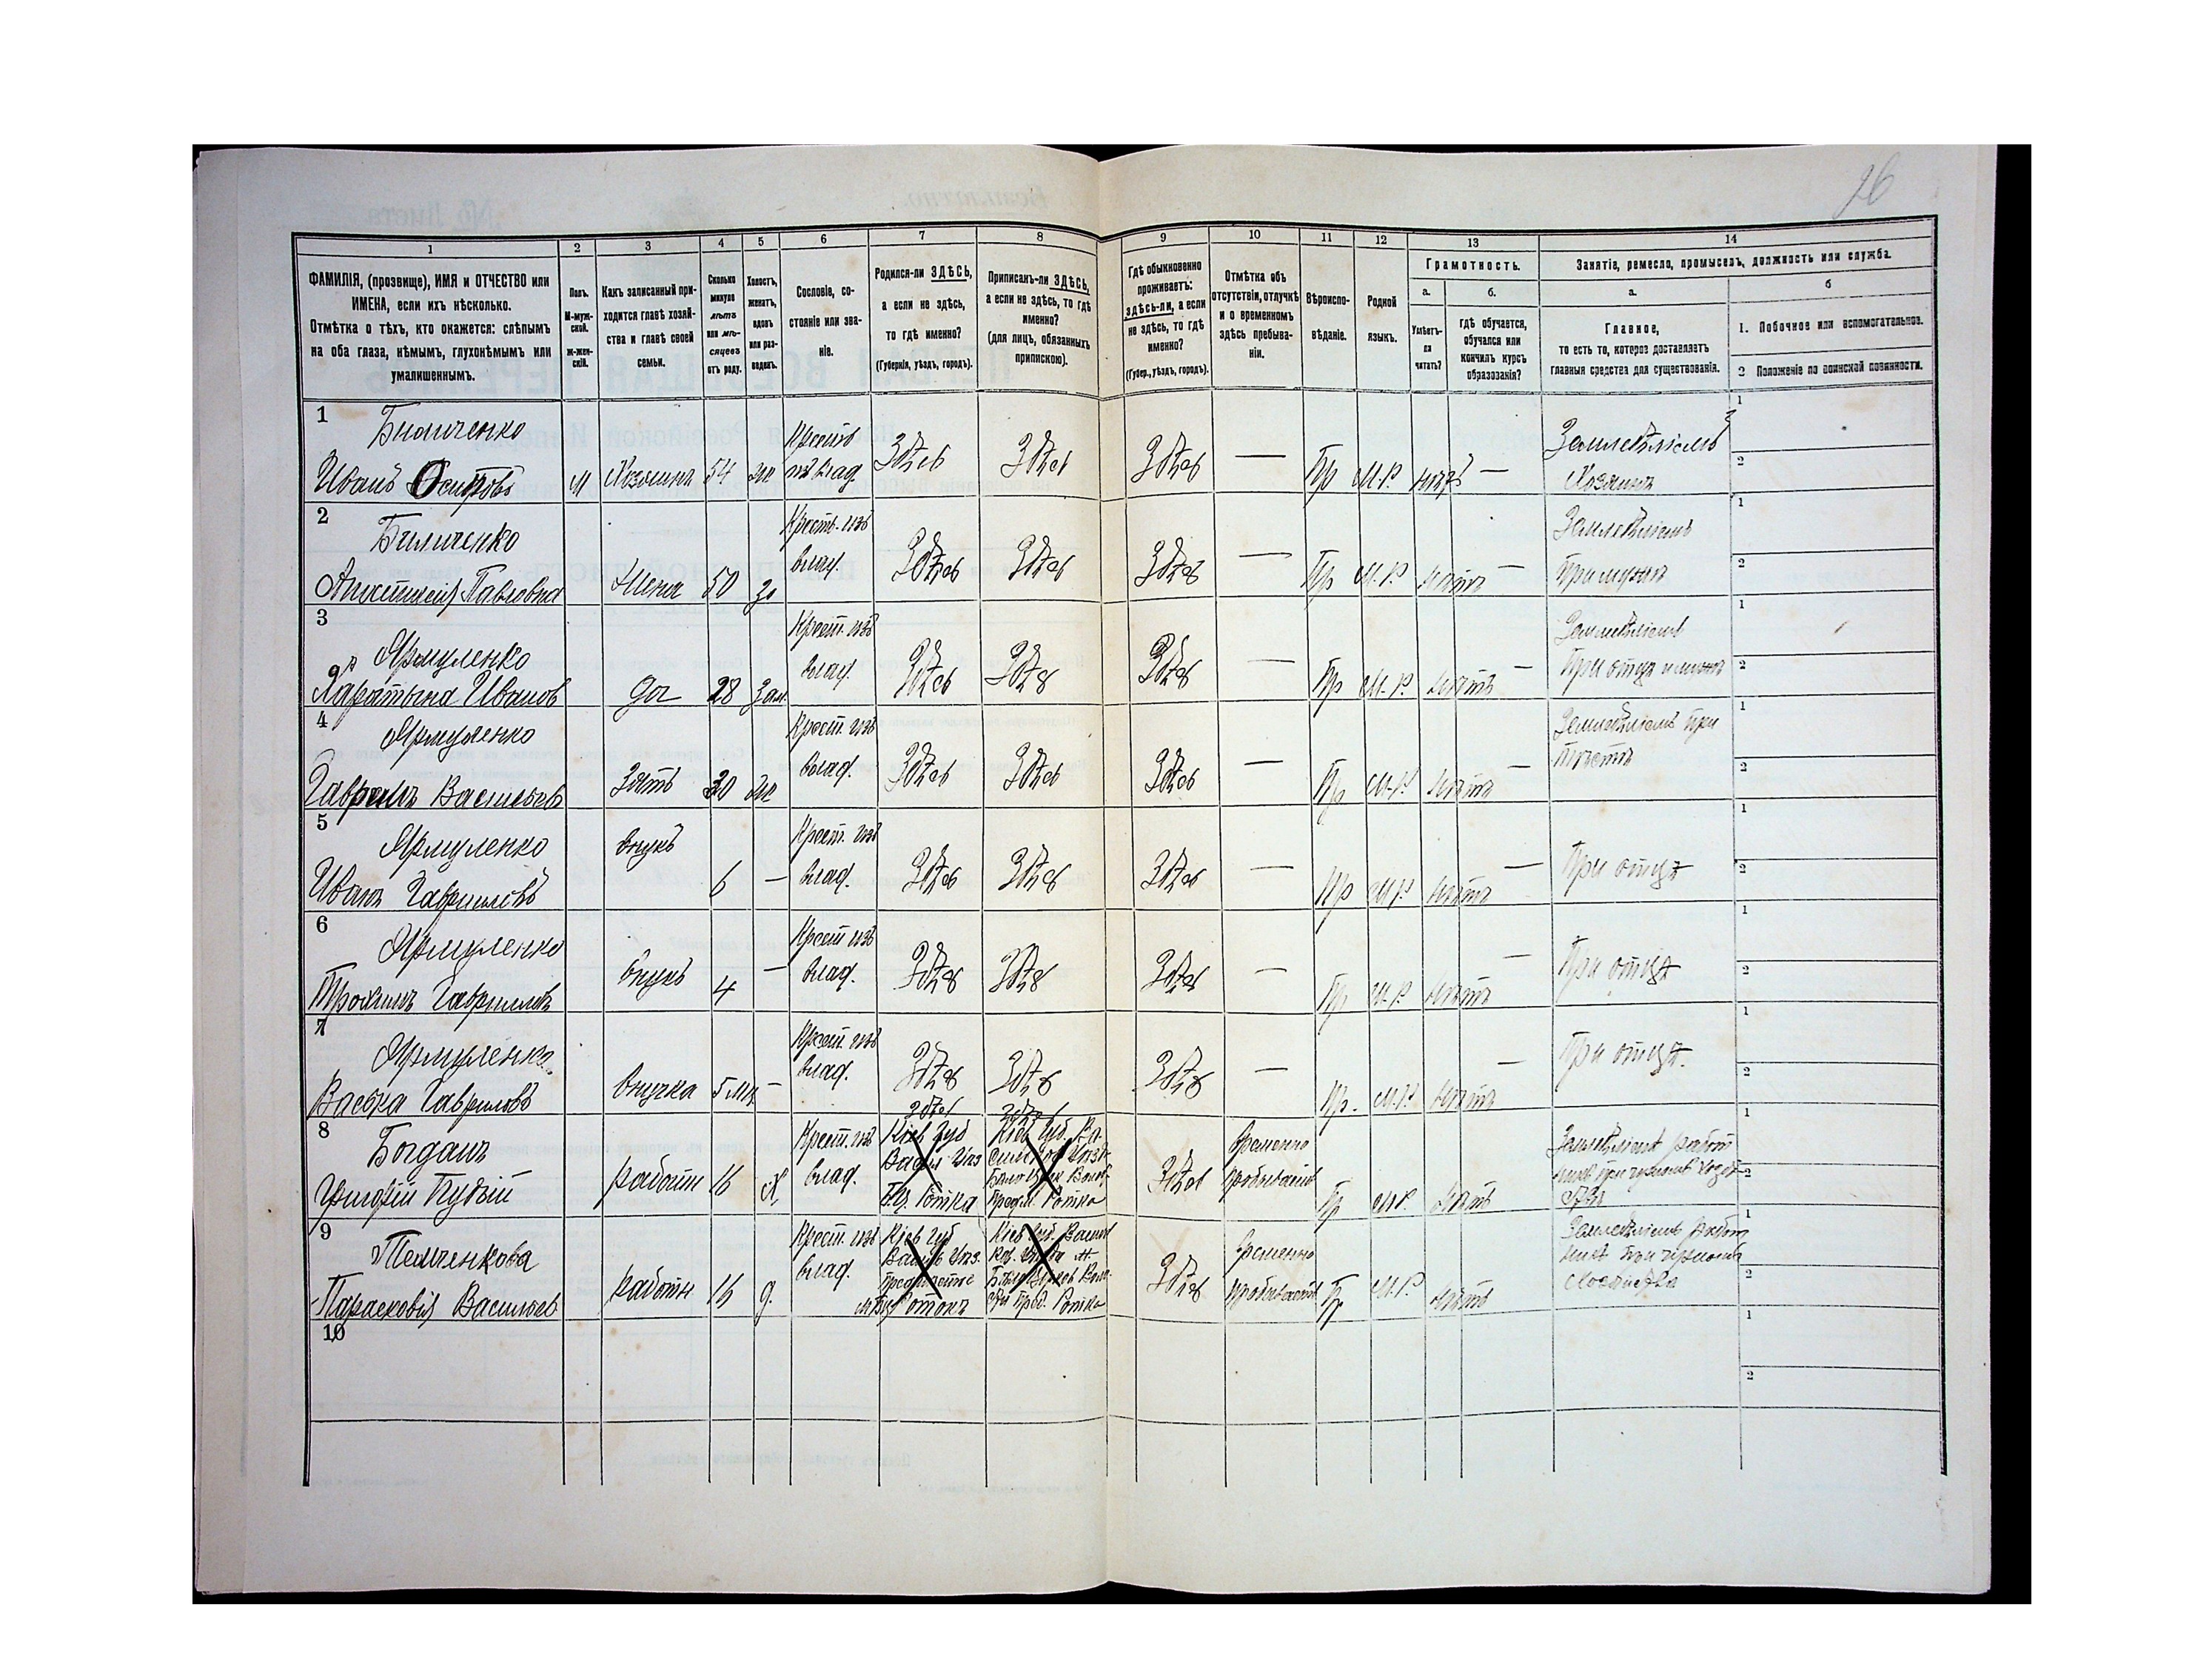 26
1 2 3 4 5 6 7 8 9 10 11 12 13 14
ФАМИЛІЯ, (прозвище), ИМЯ и ОТЧЕСТВО или
ИМЕНА, если ихъ нѣсколько.
Отмѣтка о тѣхъ, кто окажется: слѣпымъ
на оба глаза, нѣмымъ, глухонѣмымъ или
умалишеннымъ.
Полъ.
М-муж-
ской.
ж-жен-
скій.
Какъ записанный при-
ходится главѣ хозяй-
ства и главѣ своей
семьи.
Сколько
минуло
лѣтъ
или мѣ-
сяцевъ
отъ роду.
Холостъ,
женатъ,
вдовъ
или раз-
веденъ.
Сословіе, со-
стояніе или зва-
ніе.
Родился-ли ЗДѢСЬ,
а если не здѣсь,
то гдѣ именно?
(Губернія, уѣздъ, городъ).
Приписанъ-ли ЗДѢСЬ,
а если не здѣсь, то гдѣ
именно?
(для лицъ, обязанныхъ
припискою).
Гдѣ обыкновенно
проживаетъ:
здѣсь-ли, а если
не здѣсь, то гдѣ
именно?
(Губер., уѣздъ, городъ).
Отмѣтка объ
отсутствіи, отлучкѣ
и о временномъ
здѣсь пребыва-
ніи.
Вѣроиспо-
вѣданіе.
Родной
языкъ.
Грамотность.
а.
Умѣетъ-
ли
читать?
б.
гдѣ обучается,
обучался или
кончилъ курсъ
образованія?
Занятіе, ремесло, промыселъ, должность или служба.
а.
Главное,
то есть то, которое доставляетъ
главныя средства для существованія.
б
1. Побочное или вспомогательное.
2 Положеніе по воинской повинности.
1
Биличенко
Иванъ Осиповъ
М Хозяинъ 54 же
Крестъ
влад.
Здѣсь Здѣсь Здѣсь — Пр М.Р. нѣтъ —
Земледѣліемъ
Хозяинъ
1
2
2
Биличенко
Павловна
Жена 50 За
Крест. изъ
влад.
Здѣсь Здѣсь Здѣсь — Пр М.Р. нѣтъ —
Земледѣліемъ
При мужѣ
1
2
3
Ярмуленко
Иванов
доч 28 Зам.
Крест. изъ
влад.
Здѣсь Здѣсь Здѣсь — Пр М.Р. нѣтъ —
Земледѣліемъ
При отцѣ и мужѣ
1
2
4
Ярмуленко
Гаврилъ Васильев
Зять 30 же
Крест. изъ
влад.
Здѣсь Здѣсь Здѣсь — Пр М.Р. нѣтъ —
Земледѣліемъ при
тестѣ
1
2
5
Ярмуленко
Иванъ Гавриловъ
внукъ 6 —
Крест. изъ
влад.
Здѣсь Здѣсь Здѣсь — Пр М.Р. нѣтъ —
При отцѣ
1
2
6
Ярмуленко
Трохимъ Гавриловъ
внукъ 4 —
Крест. изъ
влад.
Здѣсь Здѣсь Здѣсь — Пр М.Р. нѣтъ —
При отцѣ
1
2
7
Ярмуленко
Гавриловъ
внучка 5 мѣ —
Крест. изъ
влад.
Здѣсь Здѣсь Здѣсь — Пр. М.Р. нѣтъ —
При отцѣ.
1
2
8
Богданъ
работн 16 Х
Крест. изъ
влад.
Здѣсь
Кіев Губ
Васил Уѣз
Ротка
Здѣсь
Кіев Губ. Ва-
Ротка
Здѣсь
временно
пробываетъ
Пр М.Р. нѣтъ
Земледѣліемъ работ
1
2
9
Темченкова
Парасковія Васильев
работн 16 д.
Крест. изъ
влад.
Кіев Губ
Василь Уѣз.
Кіев Губ. Васил
Ротка
Здѣсь
временно
пробываетъ
Пр М.Р. нѣтъ
Земледѣліемъ работ
Хозяйства
1
2
10
1
2